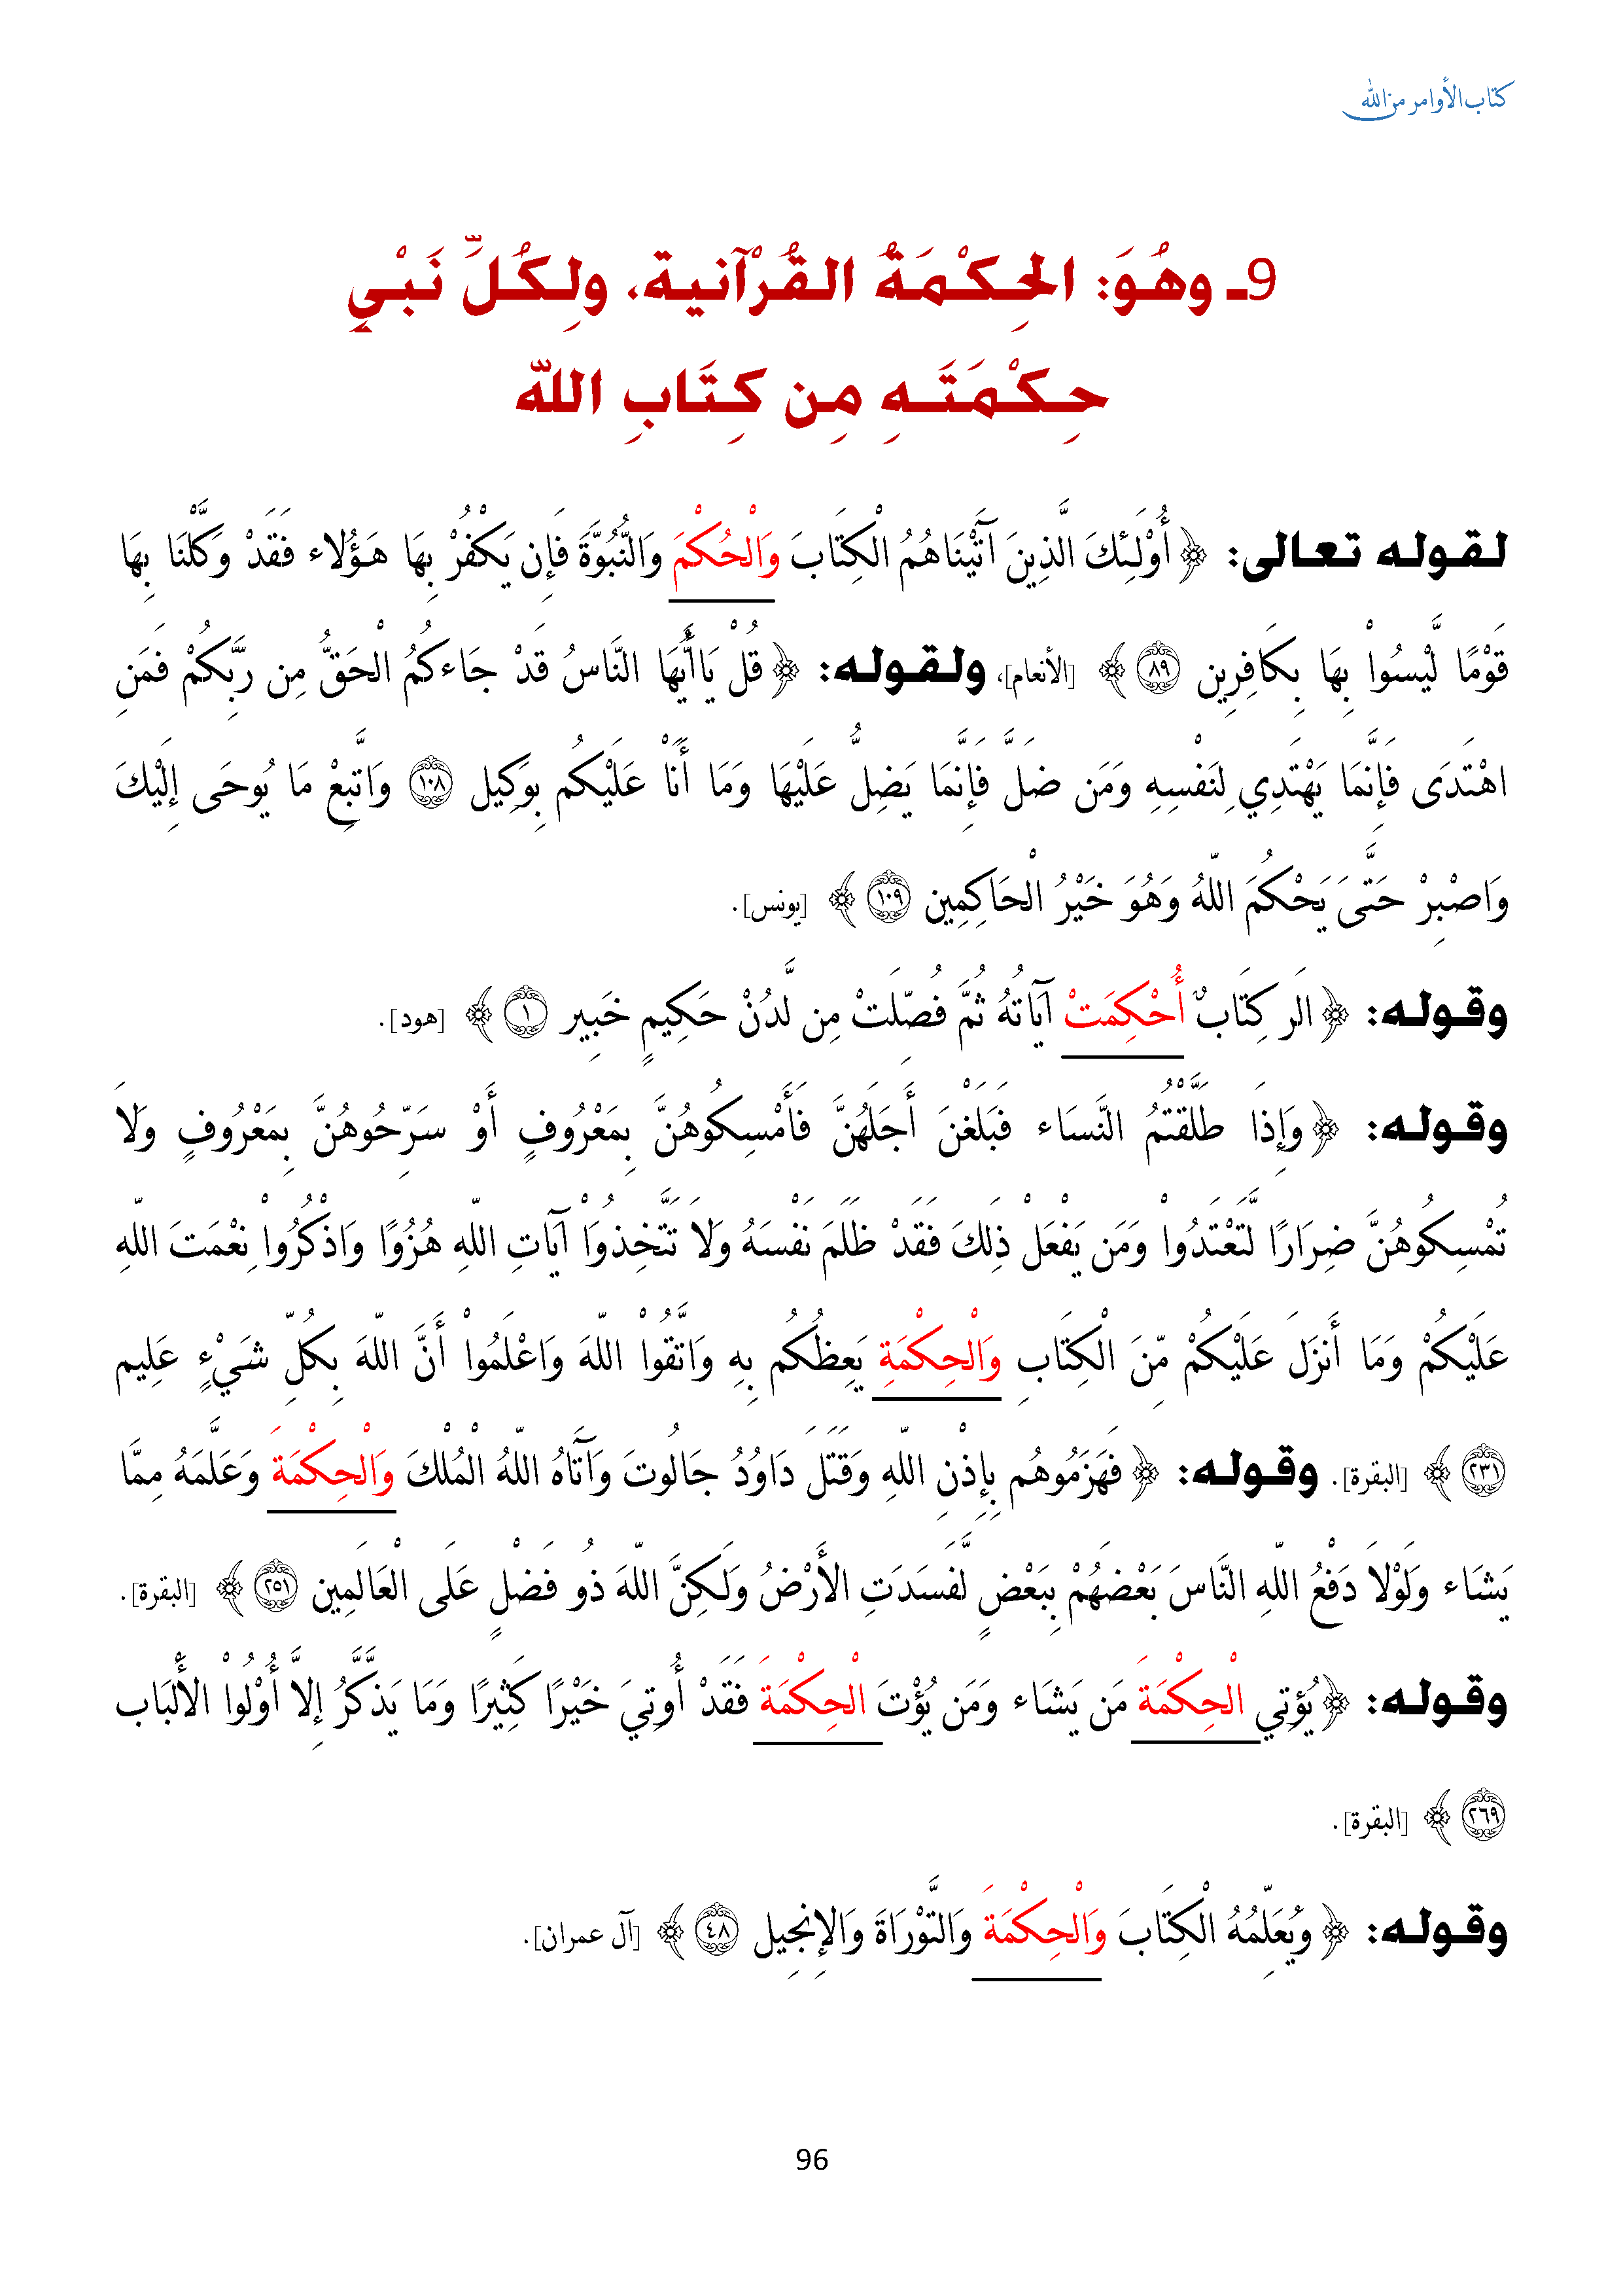 كتاب الأوامر من الله
9ـ وهُوَ: الحِكْمَةُ القُرْآنية، ولِكُلِّ نَبْيٍ
حِكْمَتَهِ مِن كِتَابِ اللّه
لقوله تعالى: ﴿أُوْلَـئِكَ الَّذِينَ آتَيْنَاهُمُ الْكِتَابَ وَالْحُكْمَ وَالنُّبُوَّةَ فَإِن يَكْفُرْ بِهَا هَـؤُلاء فَقَدْ وَكَّلْنَا بِهَا
قَوْمًا لَّيْسُواْ بِهَا بِكَافِرِين ۝٨٩﴾ [الأنعام]، ولقوله: ﴿قُلْ يَاأَيُّهَا النَّاسُ قَدْ جَاءكُمُ الْحَقُّ مِن رَّبِّكُمْ فَمَنِ
اهْتَدَى فَإِنَّمَا يَهْتَدِي لِنَفْسِهِ وَمَن ضَلَّ فَإِنَّمَا يَضِلُّ عَلَيْهَا وَمَا أَنَاْ عَلَيْكُم بِوَكِيل ۝١٠٨ وَاتَّبِعْ مَا يُوحَى إِلَيْكَ
وَاصْبِرْ حَتَّىَ يَحْكُمَ اللّهُ وَهُوَ خَيْرُ الْحَاكِمِين ۝١٠٩﴾ [يونس].
وقوله: ﴿الَر كِتَابٌ أُحْكِمَتْ آيَاتُهُ ثُمَّ فُصِّلَتْ مِن لَّدُنْ حَكِيمٍ خَبِير ۝١﴾ [هود].
وقوله: ﴿وَإِذَا طَلَّقْتُمُ النَّسَاء فَبَلَغْنَ أَجَلَهُنَّ فَأَمْسِكُوهُنَّ بِمَعْرُوفٍ أَوْ سَرِّحُوهُنَّ بِمَعْرُوفٍ وَلاَ
تُمْسِكُوهُنَّ ضِرَارًا لَّتَعْتَدُواْ وَمَن يَفْعَلْ ذَلِكَ فَقَدْ ظَلَمَ نَفْسَهُ وَلاَ تَتَّخِذُوَاْ آيَاتِ اللّهِ هُزُوًا وَاذْكُرُواْ نِعْمَتَ اللّهِ
عَلَيْكُمْ وَمَا أَنزَلَ عَلَيْكُمْ مِّنَ الْكِتَابِ وَالْحِكْمَةِ يَعِظُكُم بِهِ وَاتَّقُواْ اللّهَ وَاعْلَمُواْ أَنَّ اللّهَ بِكُلِّ شَيْءٍ عَلِيم
۝٢٣١﴾ [البقرة]. وقوله: ﴿فَهَزَمُوهُم بِإِذْنِ اللّهِ وَقَتَلَ دَاوُدُ جَالُوتَ وَآتَاهُ اللّهُ الْمُلْكَ وَالْحِكْمَةَ وَعَلَّمَهُ مِمَّا
يَشَاء وَلَوْلاَ دَفْعُ اللّهِ النَّاسَ بَعْضَهُمْ بِبَعْضٍ لَّفَسَدَتِ الأَرْضُ وَلَـكِنَّ اللّهَ ذُو فَضْلٍ عَلَى الْعَالَمِين ۝٢٥١﴾ [البقرة].
وقوله: ﴿يُؤتِي الْحِكْمَةَ مَن يَشَاء وَمَن يُؤْتَ الْحِكْمَةَ فَقَدْ أُوتِيَ خَيْرًا كَثِيرًا وَمَا يَذَّكَّرُ إِلاَّ أُوْلُواْ الأَلْبَاب
۝٢٦٩﴾ [البقرة].
وقوله: ﴿وَيُعَلِّمُهُ الْكِتَابَ وَالْحِكْمَةَ وَالتَّوْرَاةَ وَالإِنجِيل ۝٤٨﴾ [آل عمران].
96